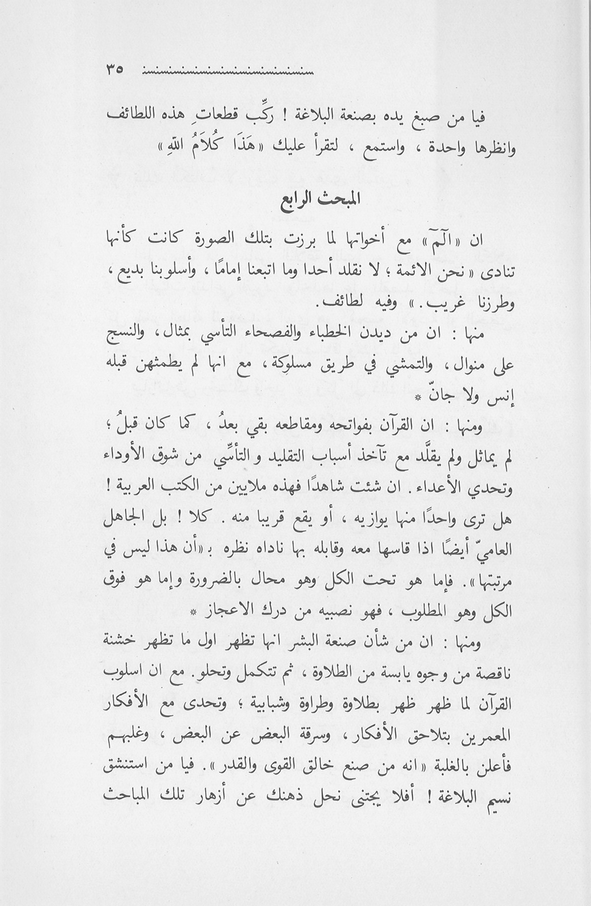 ٣٥
فيا من صبغ يده بصنعة البلاغة ! ركِّب قطعاتِ هذه اللطائف
وانظرها واحدة ، واستمع ، لتقرأ عليك «هَذَا كُلاَمُ اللّهِ»
المبحث الرابع
ان «الَمَ» مع أخواتها لما برزت بتلك الصورة كانت كأنها
تنادى «نحن الائمة ؛ لا نقلد أحدا وما اتبعنا إمامًا ، وأسلوبنا بديع ،
وطرزنا غريب.» وفيه لطائف.
منها : ان من ديدن الخطباء والفصحاء التأسي بمثال، والنسج
على منوال، والتمشي في طريق مسلوكة، مع انها لم يطمثهن قبله
إنس ولا جانّ *
ومنها : ان القرآن بفواتحه ومقاطعه بقي بعدُ ، كما كان قبلُ ؛
لم يماثل ولم يقلَّد مع تآخذ أسباب التقليد و التأسِّي من شوق الأوداء
وتحدي الأعداء . ان شئت شاهدًا فهذه ملايين من الكتب العربية !
هل ترى واحدًا منها يوازيه ، أو يقع قريبا منه . كلا ! بل الجاهل
العاميّ أيضًا اذا قاسها معه وقابله بها ناداه نظره بـ «أن هذا ليس في
مرتبتها». فإما هو تحت الكل وهو محال بالضرورة وإما هو فوق
الكل وهو المطلوب ، فهو نصيبه من درك الاعجاز *
ومنها : ان من شأن صنعة البشر انها تظهر اول ما تظهر خشنة
ناقصة من وجوه يابسة من الطلاوة ، ثم تتكمل وتحلو. مع ان اسلوب
القرآن لما ظهر ظهر بطلاوة وطراوة وشبابية ؛ وتحدى مع الأفكار
المعمرين بتلاحق الأفكار، وسرقة البعض عن البعض ، وغلبهم
فأعلن بالغلبة «انه من صنع خالق القوى والقدر». فيا من استنشق
نسيم البلاغة ! أفلا يجتنى نحل ذهنك عن أزهار تلك المباحث